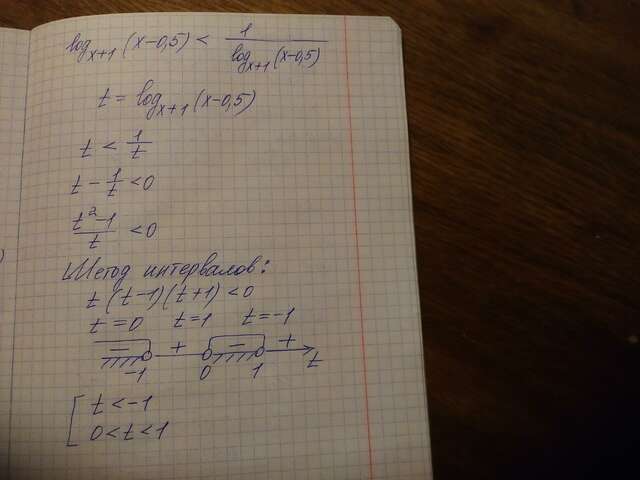 log_{x+1} (x-0,5) < \frac{1}{log_{x+1} (x-0,5)}
t = log_{x+1} (x-0,5)
t < \frac{1}{t}
t - \frac{1}{t} < 0
\frac{t^2-1}{t} < 0
Метод интервалов:
t (t-1)(t+1) < 0
t = 0 t = 1 t = -1
− + − +
-1 0 1 t
[ t < -1
0 < t < 1